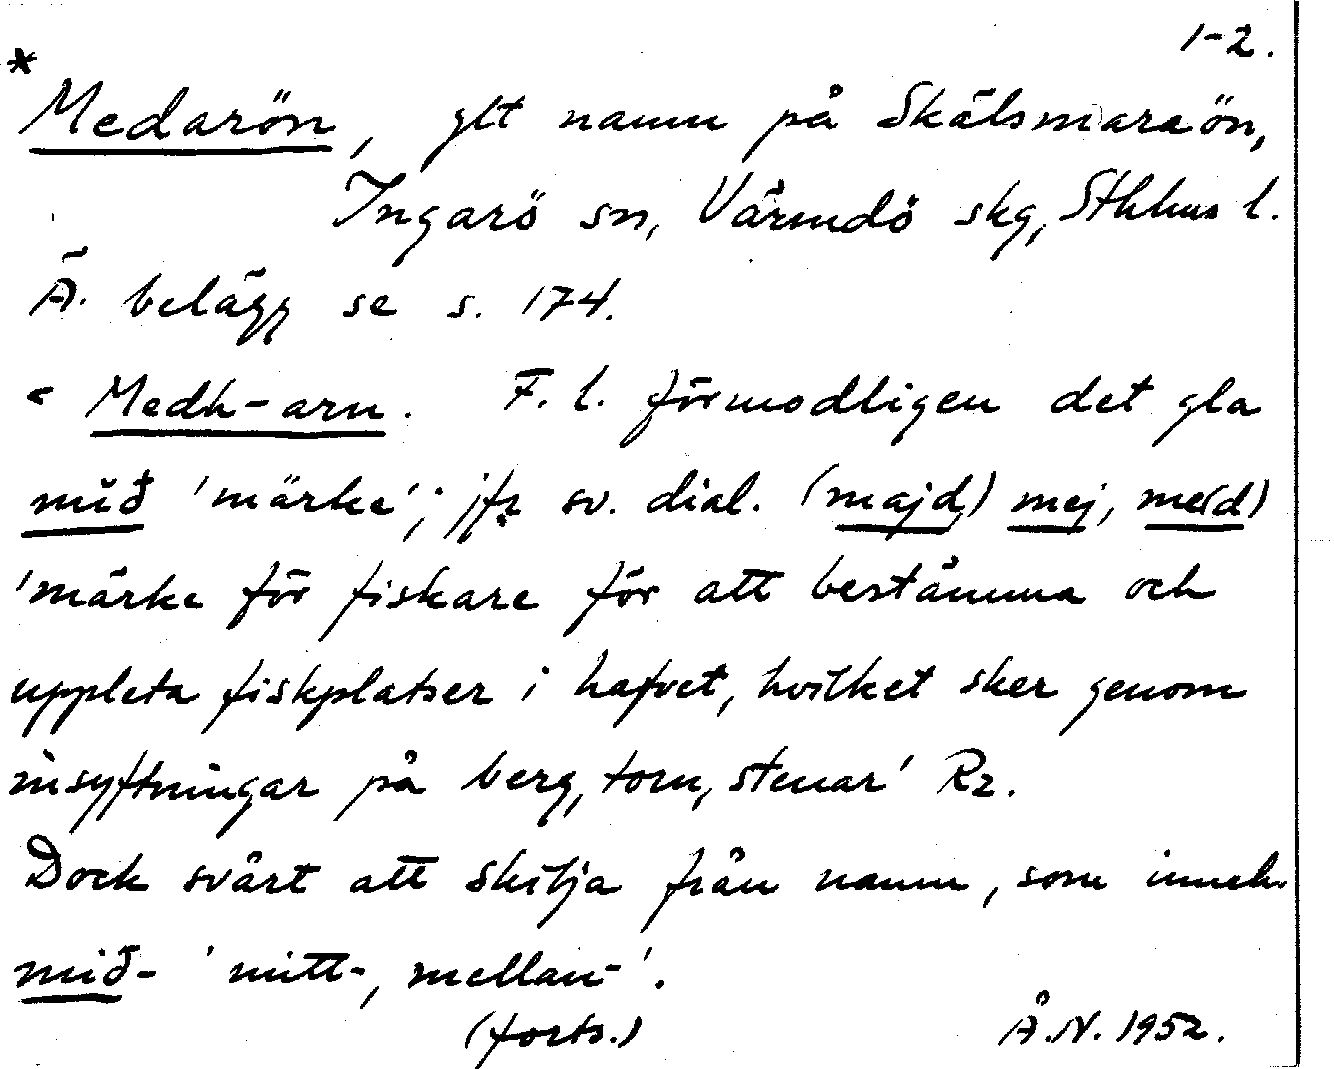 1-2.
* Medarön, glt namn på Skälsmaraön,
Ingarö sn, Värmdö skg, Sthlms l.
Ä. belägg se s. 174.
< Medh-arn. F. l. förmodligen det gla
mið 'märke'; jfr sv. dial. (majd) mej, me(d)
'märke för fiskare för att bestämma och
uppleta fiskplatser i hafvet, hvilket sker genom
insyftningar på berg, torn, stenar' Rz.
Dock svårt att skilja från namn, som inneh.
mið- 'mitt-, mellan-'.
(forts.) Å.N. 1952.